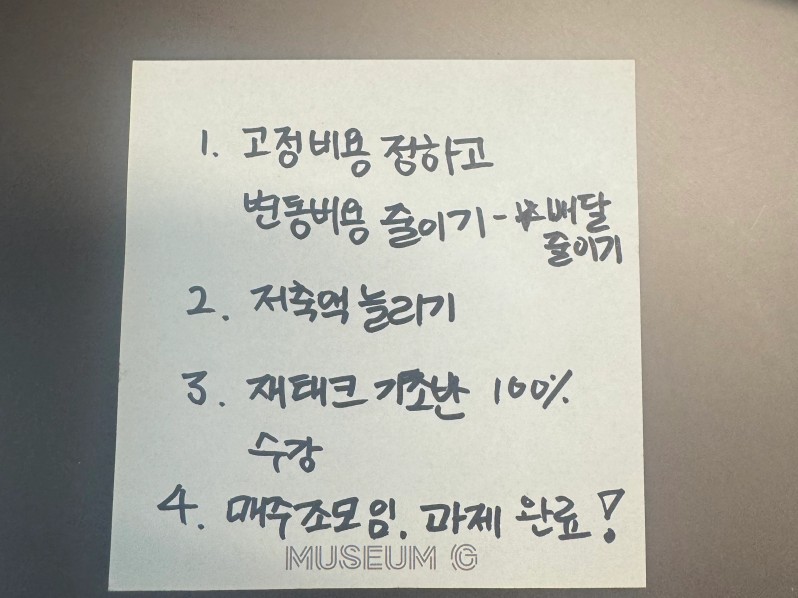 1. 고정비용 정하고
변동비용 줄이기 - * 배달
줄이기
2. 저축액 늘리기
3. 재태크 기초반 100%
수강
4. 매주조모임, 과제 완료!
MUSEUM G